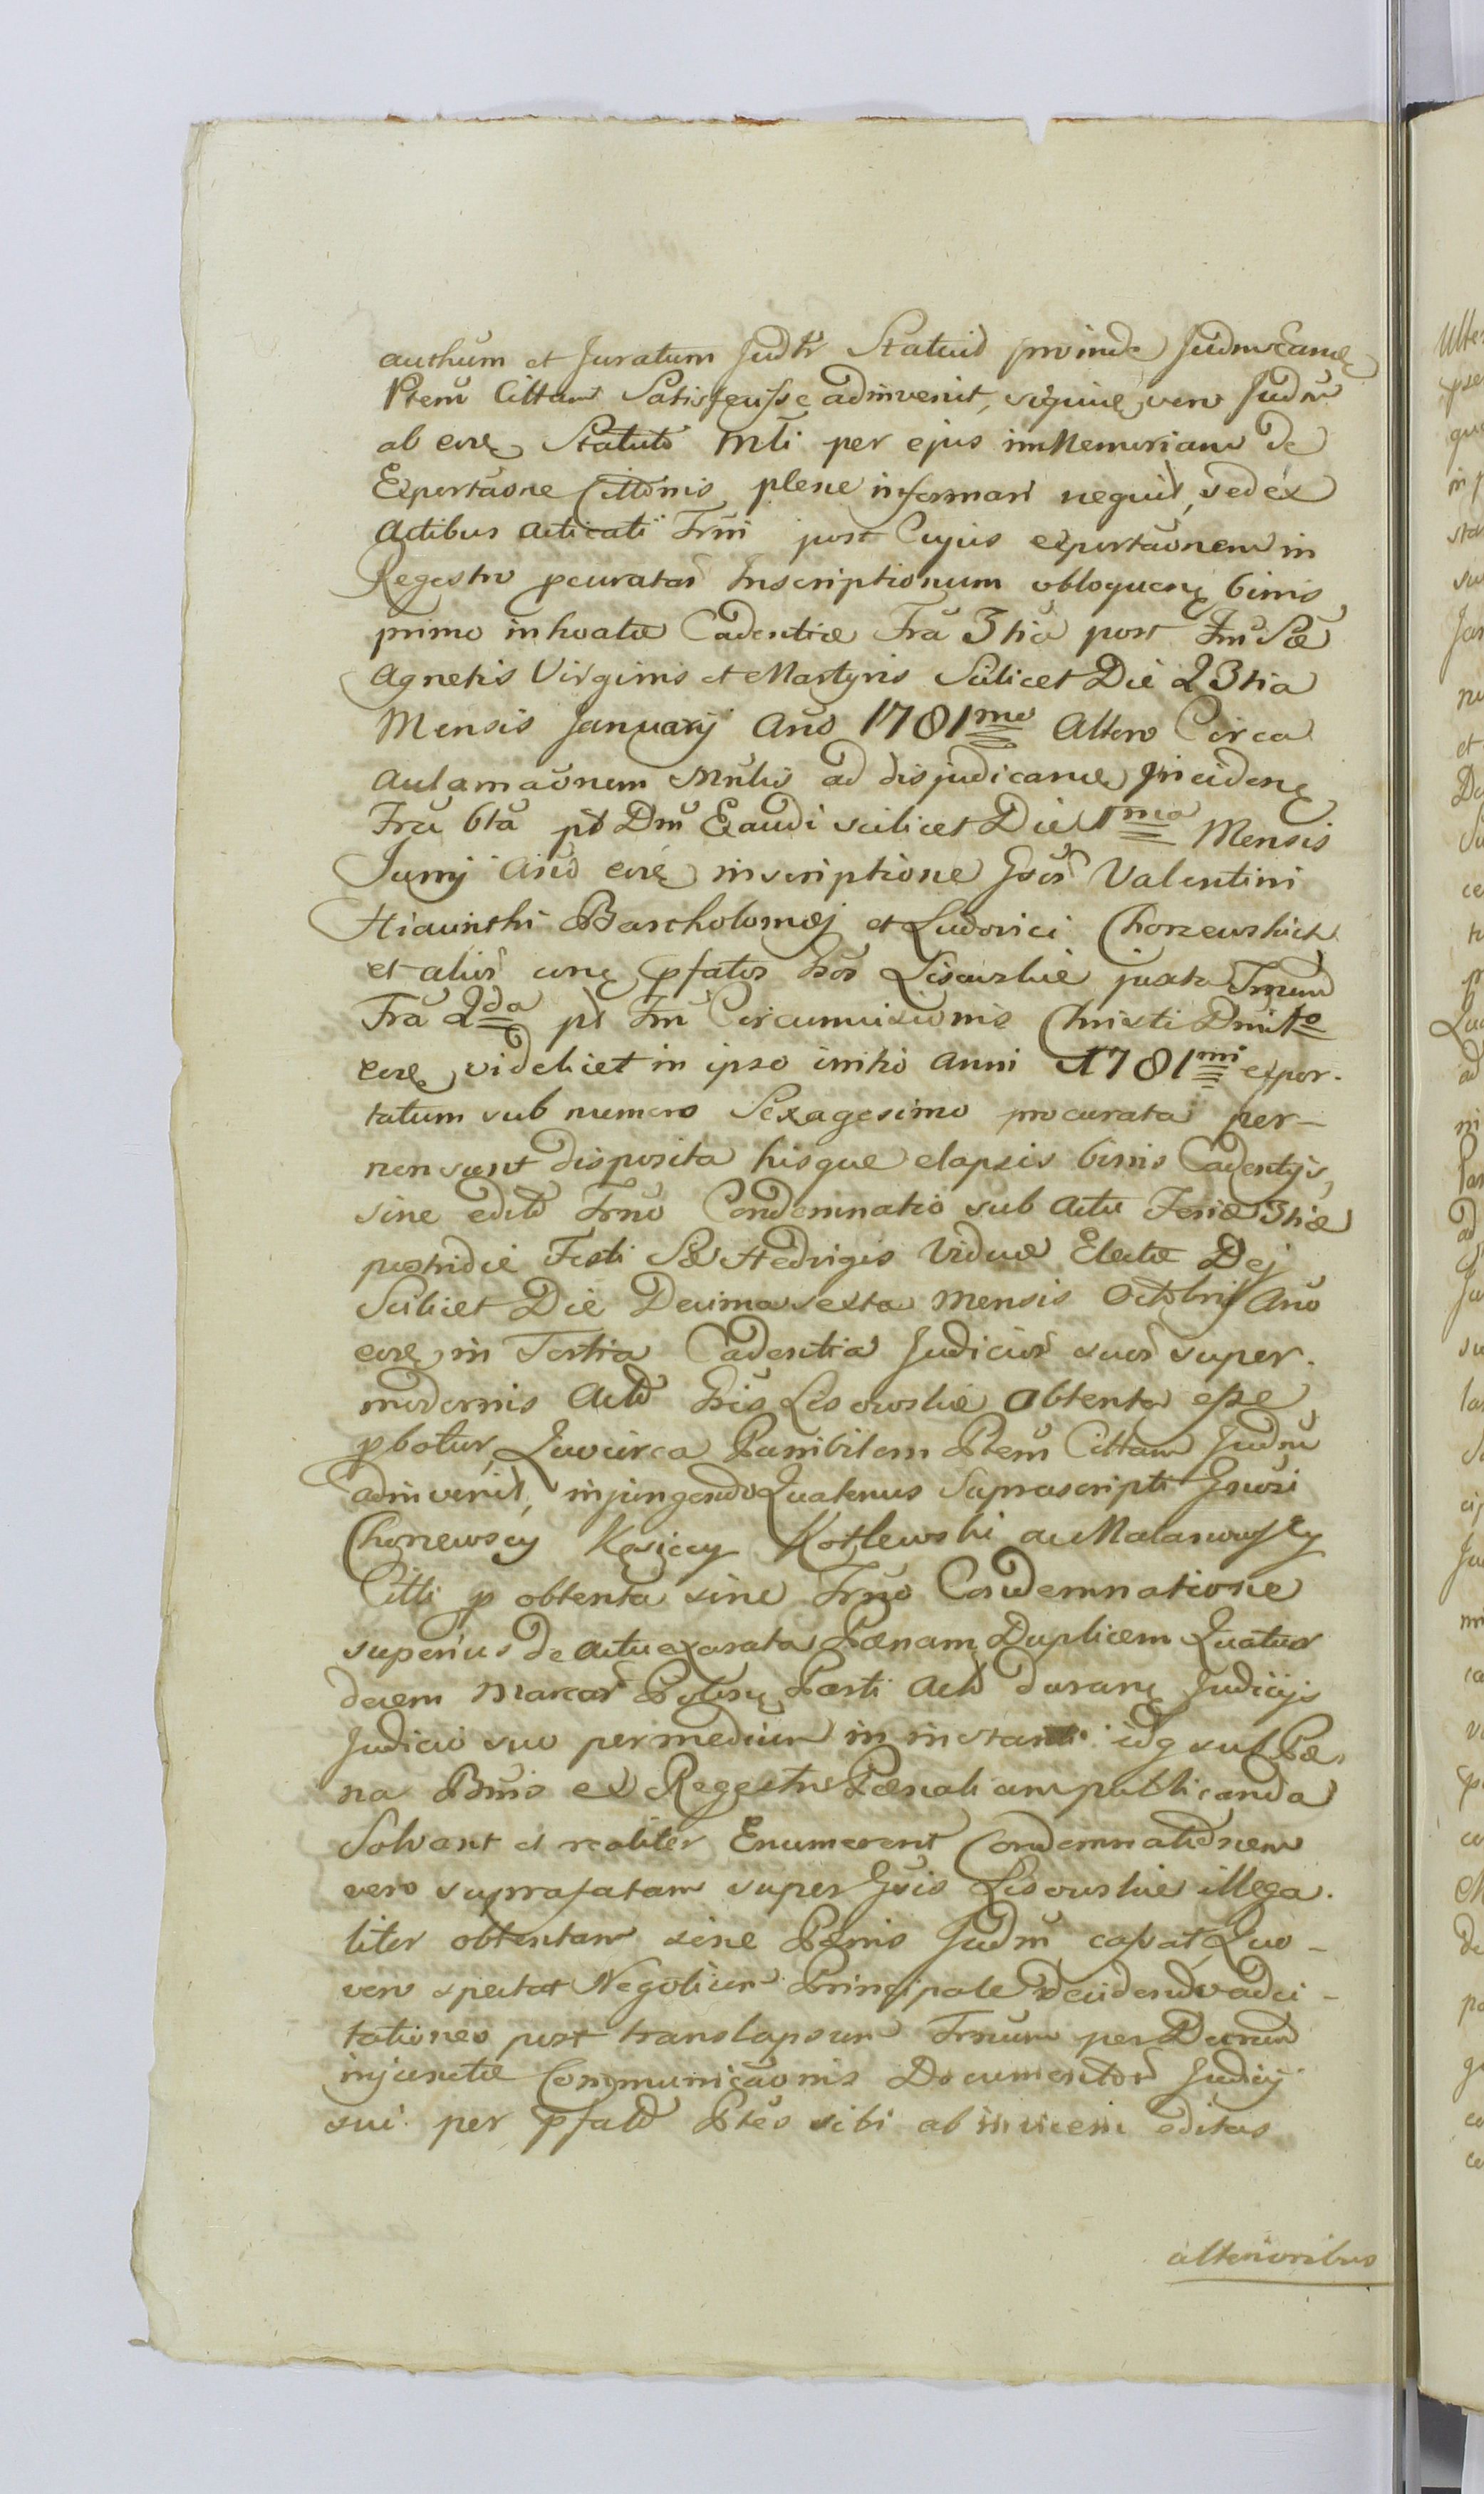 authum et Juratum Judtr Statuit proinde Judm Eandę
Ptem Cittam Satisfecisse adinvenit, siquidę vero Judm
ab eorę Statuto Mli per ejus immemoriam de
Exportaone Cittonis plene informari nequit, sed ex
Actibus acticati Trni post Cujus exportaonem in
Regestro pcuratar Inscriptionum obloquenę binis
primo inhoatæ Cadentiæ Fra 3tia post Fm Sæ
Agnetis Virginis et Martyris Scilicet Die 23tia
Mensis Januarij Ano 1781mo Altero Circa
aclamaonem Mnlis ad disjudicanuę Inciden ę
Fra 6ta pt Dm Exaudi scilicet Die 1ma Mensis
Junij Ano eorę inscriptione Gsor Valentini
Hiacinthi Bartholomæj et Ludovici Chorzewskich
et alior conę pfatos Gsos Lisowskie juxta Trnum
Fra 2da pt Fm Circumcisionis Christi Dni 1o
eorę videlicet in ipso initio Anni 1781mi expor-
tatum sub numero Sexagesimo procurata per-
nen sunt disposita hisque elapsis binis Cadentijs,
sine edito Trno Condemnatio sub actu Feriæ 3tiæ
postridie Festi Sæ Hedvigis Viduæ Electæ Dej
Scilicet Die Decima sexta Mensis Octobris Ano
eorę in Tertia Cadentia Judicior suor super
modernis Acto Gsis Lisowskie Obtenta esse
pbatur, Quocirca Punibilem Ptem Cittam Judm
adinvenit, injungendo Quatenus Suprascripti Gnrosi
Chorzewscy Kosiccy Kotlewski ac Malanowscy
Citti p obtenta sine Trno Condemnatione
superius de actu exarata Pænam Duplicem Quatuor
decem Marcar Polnę Parti Acto durane Judicijs
Judicio suo per medium in instanti idq sub Pæ-
na Bnis ex Regestro Pænali am publicanda
Solvant et realiter Enumerent Condemnationem
vero suprafatam super Gsis Lisowskie illega-
liter obtentam sine Pænis Judm cassat, Quo-
vero spectat Negotium Principale decidendo adci-
tationes post translapsum Trnum per Decretum
injunctæ Communicaonis Documentor Judicij
sui per pfato Ptes sibi ab invicem editas
alterioribus